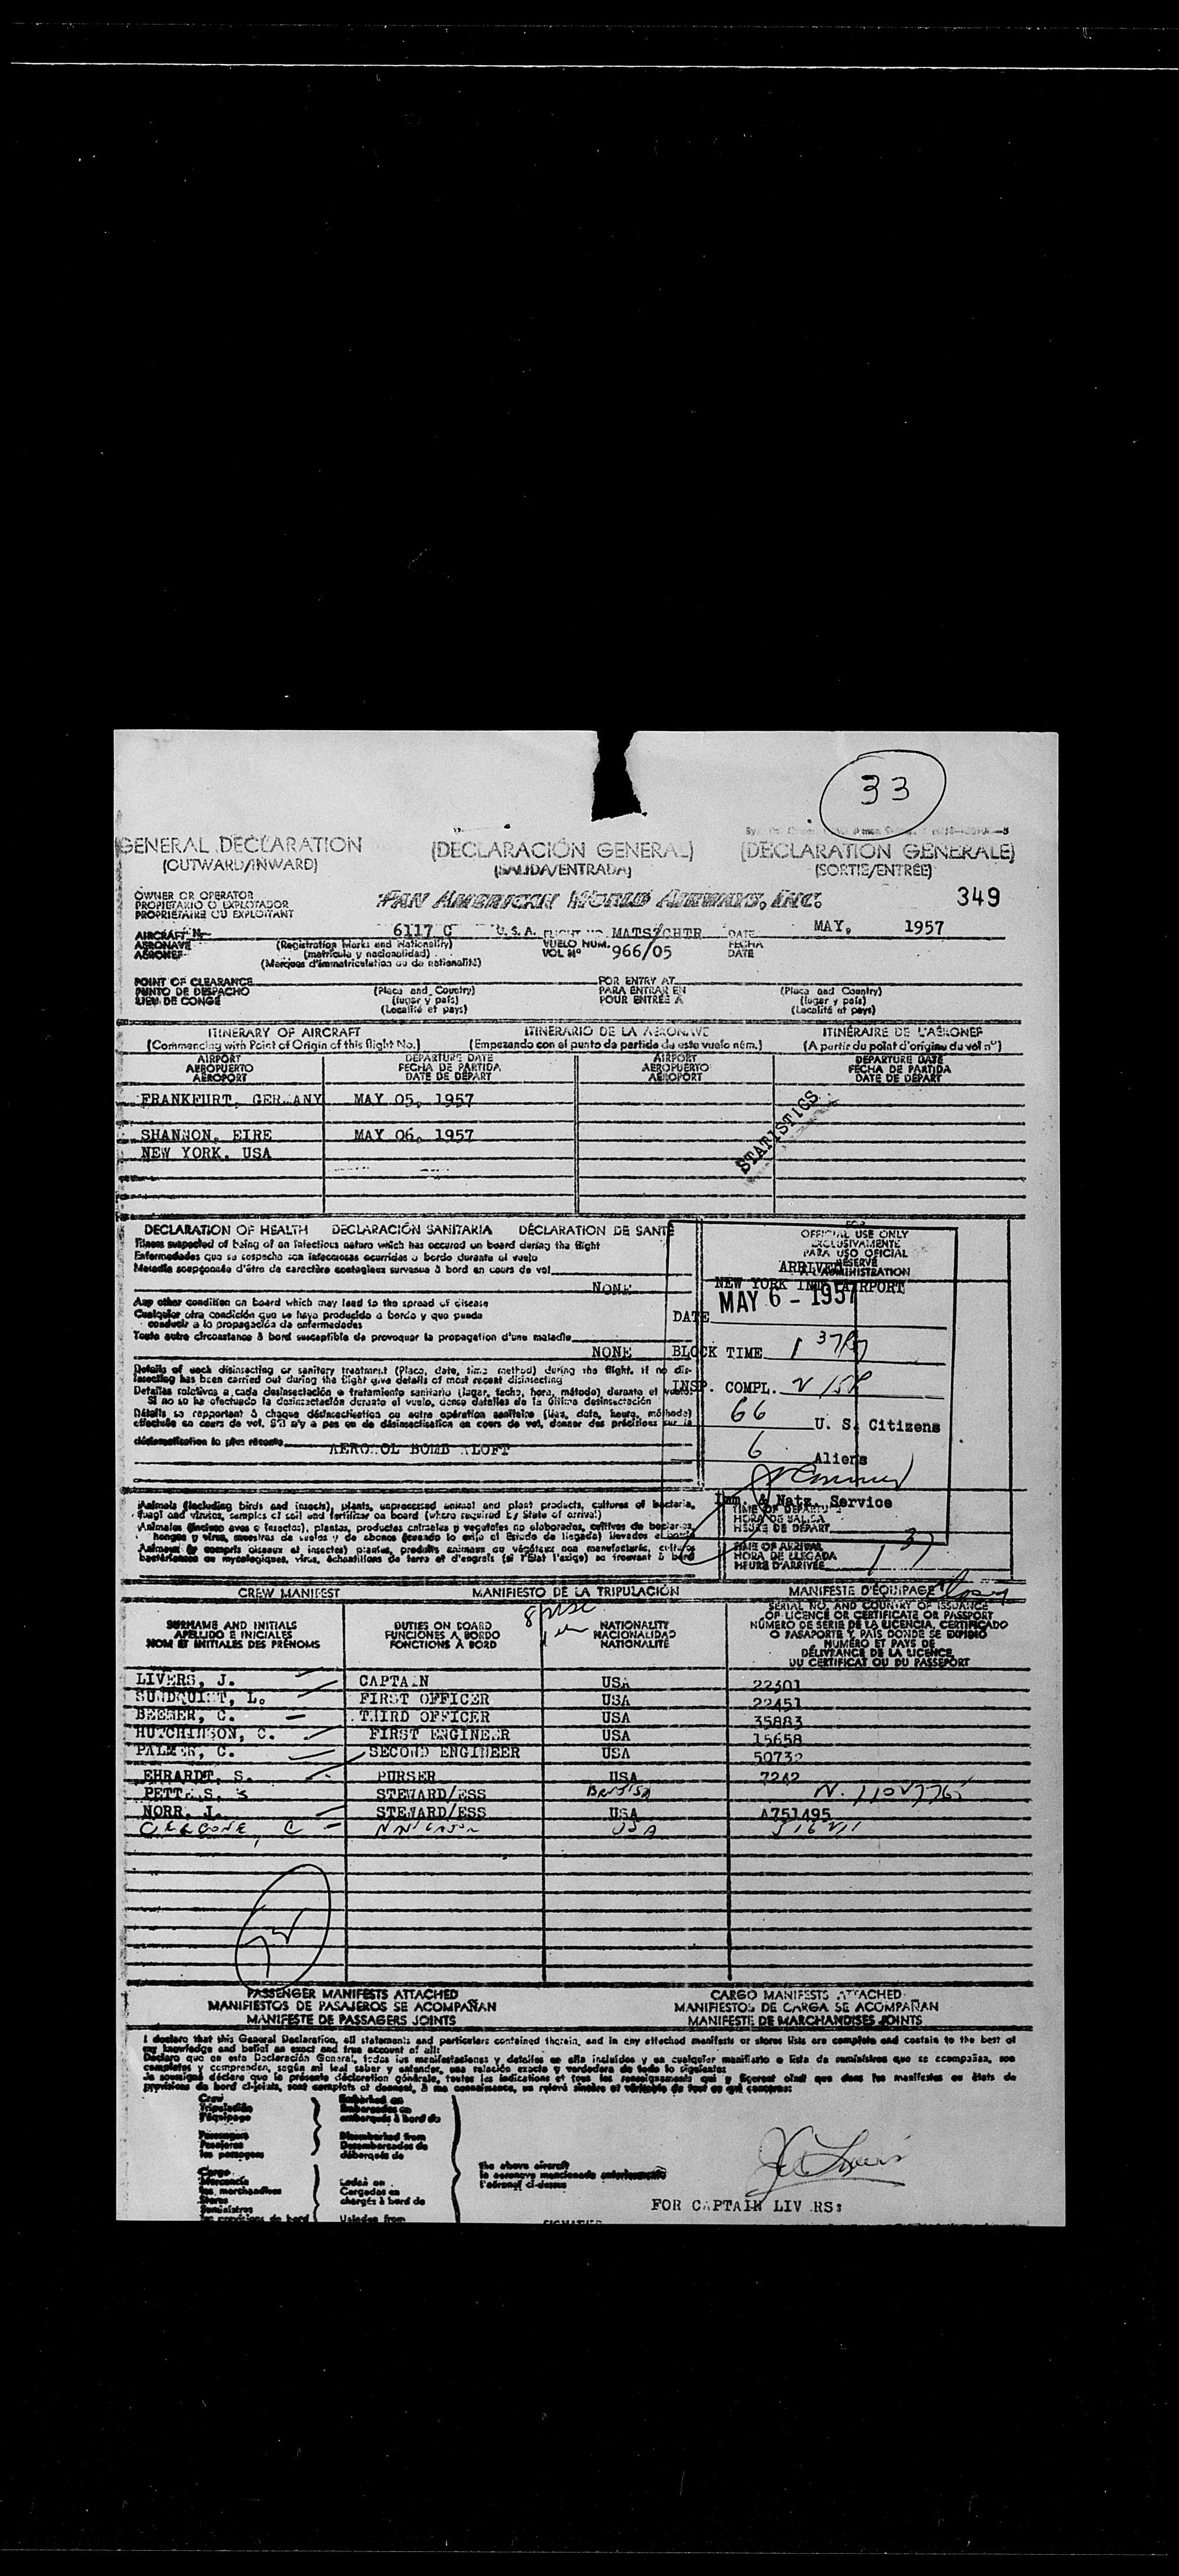 33
GENERAL DECLARATION (DECLARACIÓN GENERAL) (DECLARATION GENERALE)
(OUTWARD/INWARD) (SALIDA/ENTRADA) (SORTIE/ENTRÉE)
OWNER OR OPERATOR
PROPIETARIO O EXPLOTADOR
PROPRIÉTAIRE OU EXPLOITANT
PAN AMERICAN WORLD AIRWAYS, INC. 349
AIRCRAFT No 6117 C U.S.A. FLIGHT NO. MATS/CHTR DATE MAY, 1957
AERONAVE (Registration Marks and Nationality) VUELO NUM. 966/05 FECHA
AÉRONEF (matrícula y nacionalidad) VOL Nº DATE
(Marques d'immatriculation ou de nationalité)
POINT OF CLEARANCE FOR ENTRY AT
PUNTO DE DESPACHO (Place and Country) PARA ENTRAR EN (Place and Country)
LIEU DE CONGÉ (lugar y país) POUR ENTRÉE A (lugar y país)
(Localité et pays) (Localité et pays)
ITINERARY OF AIRCRAFT ITINERARIO DE LA AERONAVE ITINÉRAIRE DE L'AÉRONEF
(Commencing with Point of Origin of this flight No.) (Empezando con el punto de partida de este vuelo núm.) (A partir du point d'origine du vol nº)
AIRPORT DEPARTURE DATE AIRPORT DEPARTURE DATE
AEROPUERTO FECHA DE PARTIDA AEROPUERTO FECHA DE PARTIDA
AÉROPORT DATE DE DÉPART AÉROPORT DATE DE DÉPART
FRANKFURT, GERMANY MAY 05, 1957
STATISTICS
SHANNON, EIRE MAY 06, 1957
NEW YORK. USA
DECLARATION OF HEALTH DECLARACIÓN SANITARIA DÉCLARATION DE SANTÉ
Illness suspected of being of an infectious nature which has occured on board during the flight
Enfermedades que se sospecha son infecciosas ocurridas a bordo durante el vuelo
Maladie soupçonnée d'être de caractère contagieux survenue à bord en cours de vol
NONE
Any other condition on board which may lead to the spread of disease
Cualquier otra condición que se haya producido a bordo y que pueda
conducir a la propagación de enfermedades
Toute autre circonstance à bord susceptible de provoquer la propagation d'une maladie
NONE
Details of each disinsecting or sanitary treatment (Place, date, time method) during the flight. If no dis-
insecting has been carried out during the flight give details of most recent disinsecting
Detalles relativos a cada desinsectación o tratamiento sanitario (lugar, fecha, hora, método) durante el vuelo.
Si no se ha efectuado la desinsectación durante el vuelo, dense detalles de la última desinsectación
Détails se rapportant à chaque désinsectisation ou autre opération sanitaire (lieu, date, heure, méthode)
effectuée en cours de vol. S'il n'y a pas eu de désinsectisation en cours de vol, donner des précisions sur la
désinsectisation la plus récente
AEROSOL BOMB ALOFT
OFFICIAL USE ONLY
EXCLUSIVAMENTE
PARA USO OFICIAL
RÉSERVÉ
A L'ADMINISTRATION
ARRIVED
NEW YORK INT'L AIRPORT
DATE MAY 6 - 1957
BLOCK TIME 1 37 P
INSP. COMPL.
66 U. S. Citizens
6 Aliens
Imm. & Natz. Service
Animals (including birds and insects), plants, unprocessed animal and plant products, cultures of bacteria,
fungi and viruses, samples of soil and fertilizer on board (where required by State of arrival)
Animales (incluso aves e insectos), plantas, productos animales y vegetales no elaborados, cultivos de bacterias,
hongos y virus, muestras de suelos y de abonos (cuando lo exija el Estado de llegada) llevados a bordo
Animaux (y compris oiseaux et insectes) plantes, produits animaux ou végétaux non manufacturés, cultures
bactériennes ou mycologiques, virus, échantillons de terre et d'engrais (si l'État l'exige) se trouvant à bord
TIME OF DEPARTURE
HORA DE SALIDA
HEURE DE DÉPART
TIME OF ARRIVAL
HORA DE LLEGADA 1 37
HEURE D'ARRIVÉE
CREW MANIFEST MANIFIESTO DE LA TRIPULACIÓN MANIFESTE D'ÉQUIPAGE
SURNAME AND INITIALS DUTIES ON BOARD NATIONALITY SERIAL NO. AND COUNTRY OF ISSUANCE
APELLIDO E INICIALES FUNCIONES A BORDO NACIONALIDAD OF LICENCE OR CERTIFICATE OR PASSPORT
NOM ET INITIALES DES PRÉNOMS FONCTIONS À BORD NATIONALITÉ NÚMERO DE SERIE DE LA LICENCIA, CERTIFICADO
O PASAPORTE Y PAIS DONDE SE EXPIDIÓ
NUMÉRO ET PAYS DE
DÉLIVRANCE DE LA LICENCE,
DU CERTIFICAT OU DU PASSEPORT
LIVERS, J. CAPTAIN USA 22301
SUNDQUIST, L. FIRST OFFICER USA 22451
BEEMER, C. THIRD OFFICER USA 35883
HUTCHINSON, C. FIRST ENGINEER USA 15658
PALMER, C. SECOND ENGINEER USA 50732
EHRARDT, S. PURSER USA 7242
PETTE S, S STEWARD/ESS British
NORR, J. STEWARD/ESS USA A751495
USA
PASSENGER MANIFESTS ATTACHED CARGO MANIFESTS ATTACHED
MANIFIESTOS DE PASAJEROS SE ACOMPAÑAN MANIFIESTOS DE CARGA SE ACOMPAÑAN
MANIFESTE DE PASSAGERS JOINTS MANIFESTE DE MARCHANDISES JOINTS
I declare that this General Declaration, all statements and particulars contained therein, and in any attached manifests or stores lists are complete and contain to the best of
my knowledge and belief an exact and true account of all:
Declaro que en esta Declaración General, todas las manifestaciones y detalles en ella incluídos y en cualquier manifiesto o lista de suministros que se acompañan, son
completos y comprenden, según mi leal saber y entender, una relación exacta y verdadera de todo lo siguiente:
Je soussigné déclare que la présente déclaration générale, toutes les indications et tous les renseignements qui y figurent ainsi que dans les manifestes ou états de
provisions de bord ci-joints, sont complets et donnent, à ma connaissance, un relevé sincère et véritable de tout ce qui concerne:
Crew Embarked on
Tripulación Embarcados en
l'équipage embarqués à bord du
Passengers Disembarked from
Pasajeros Desembarcados de
les passagers débarqués de
Cargo The above aircraft
Mercancía Laden on la aeronave mencionada anteriormente
les marchandises Cargados en l'aéronef ci-dessus
Stores chargés à bord de
Suministros
les provisions de bord Unladen from
FOR CAPTAIN LIV RS: